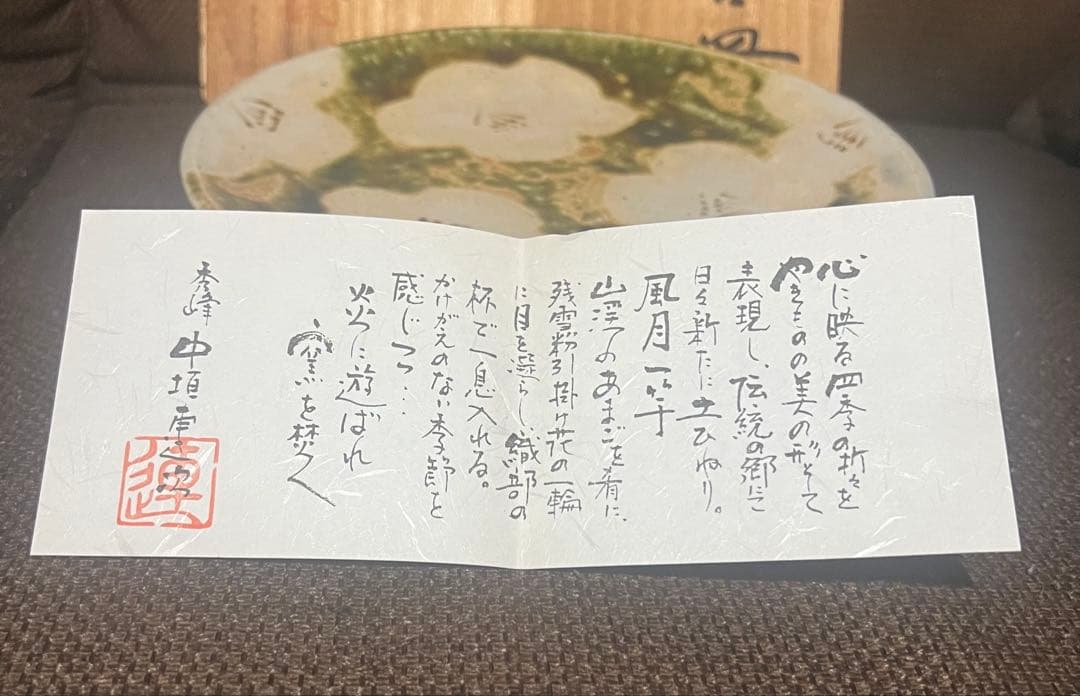 心に映る四季の折々を
やきものの美の形そて
表現し、伝統の郷にこ
日々新たに土ひねり。
風月一竿
山渓のあまごを肴に、
残雪粉引掛け花の一輪
に目を遊らし、織部の
杯で一息入れる。
かけがえのない季節を
感じつ・・
炎に遊ばれ
窯を焚く
秀峰 中垣連次
連